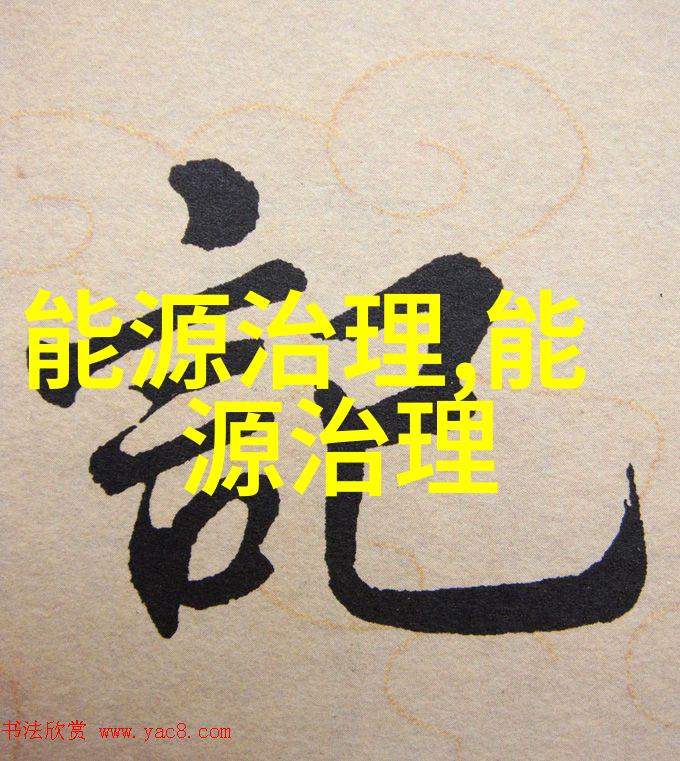 記
能源治理,能
源治理
书法欣赏 www.yac8.com